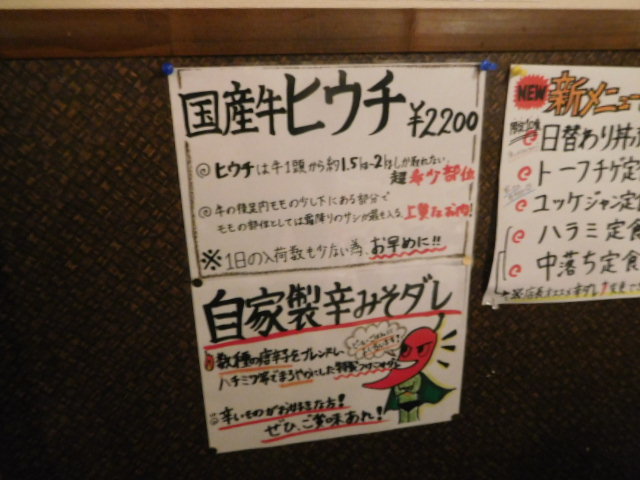 国産牛ヒウチ ¥2200
◎ヒウチは牛1頭から約1.5kg~2kgしか取れない
超希少部位
◎牛の後足内モモの少し下にある部分で
モモの部位としては霜降りのサシが最も入る、上質なお肉!
※1日の入荷数も少ない為、お早めに!!
自家製辛みそダレ
数種の唐辛子をブレンドし、
ハチミツ等でまろやかにした
辛いものがお好きな方!
ぜひ、ご賞味あれ!
NEW 新メニュー
日替わり丼
トーフチゲ定
ユッケジャン定
ハラミ定食
中落ち定食